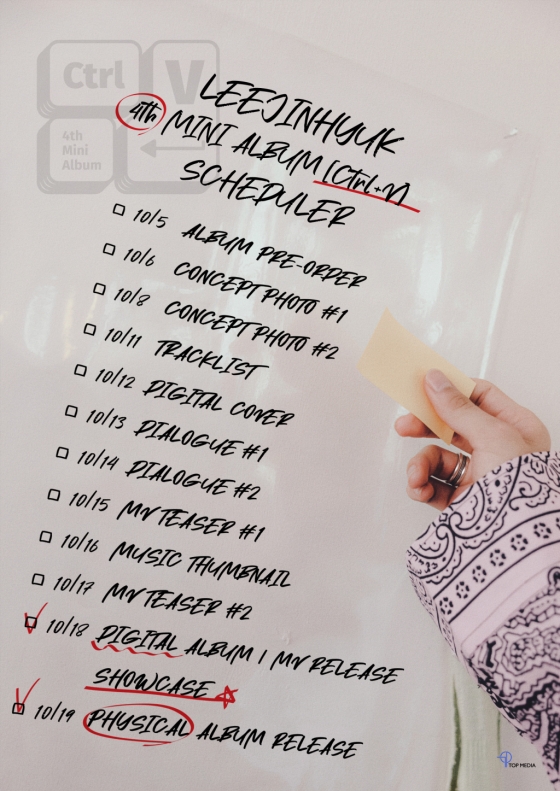 Ctrl V
4th
Mini
Album
LEEJINHYUK
4th MINI ALBUM [Ctrl+V]
SCHEDULER
10/5 ALBUM PRE-ORDER
10/6 CONCEPT PHOTO #1
10/8 CONCEPT PHOTO #2
10/11 TRACKLIST
10/12 DIGITAL COVER
10/13 DIALOGUE #1
10/14 DIALOGUE #2
10/15 MV TEASER #1
10/16 MUSIC THUMBNAIL
10/17 MV TEASER #2
10/18 DIGITAL ALBUM / MV RELEASE
SHOWCASE
10/19 PHYSICAL ALBUM RELEASE
TOP MEDIA